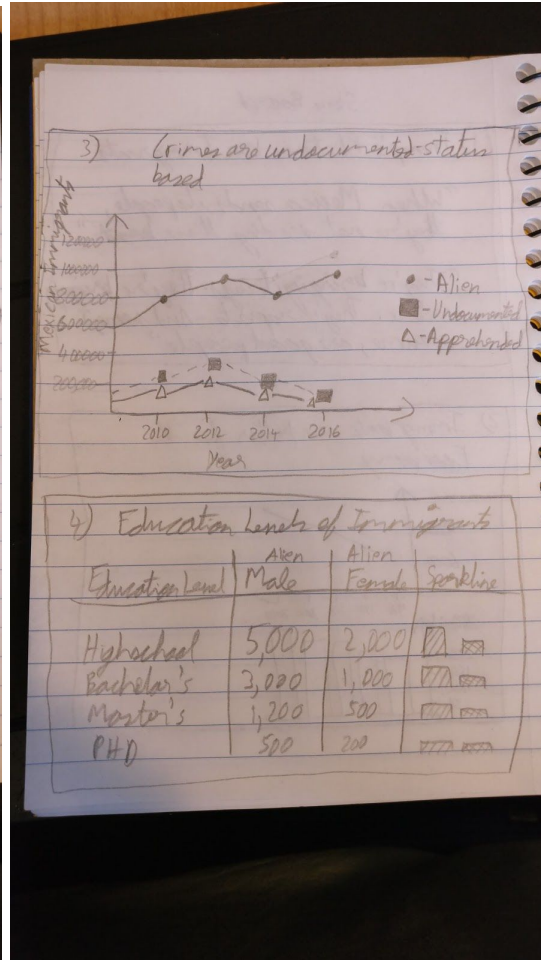 3) Crimes are undocumented-status
based
Mexican Immigrants
1200000
1000000
800000
600000
400000
200,000
- Alien
- Undocumented
- Apprehended
2010 2012 2014 2016
Year
4) Education Levels of Immigrants
Education Level Alien Male Alien Female Sparkline
Highschool 5,000 2,000
Bachelor's 3,000 1,000
Master's 1,200 500
PHD 500 200